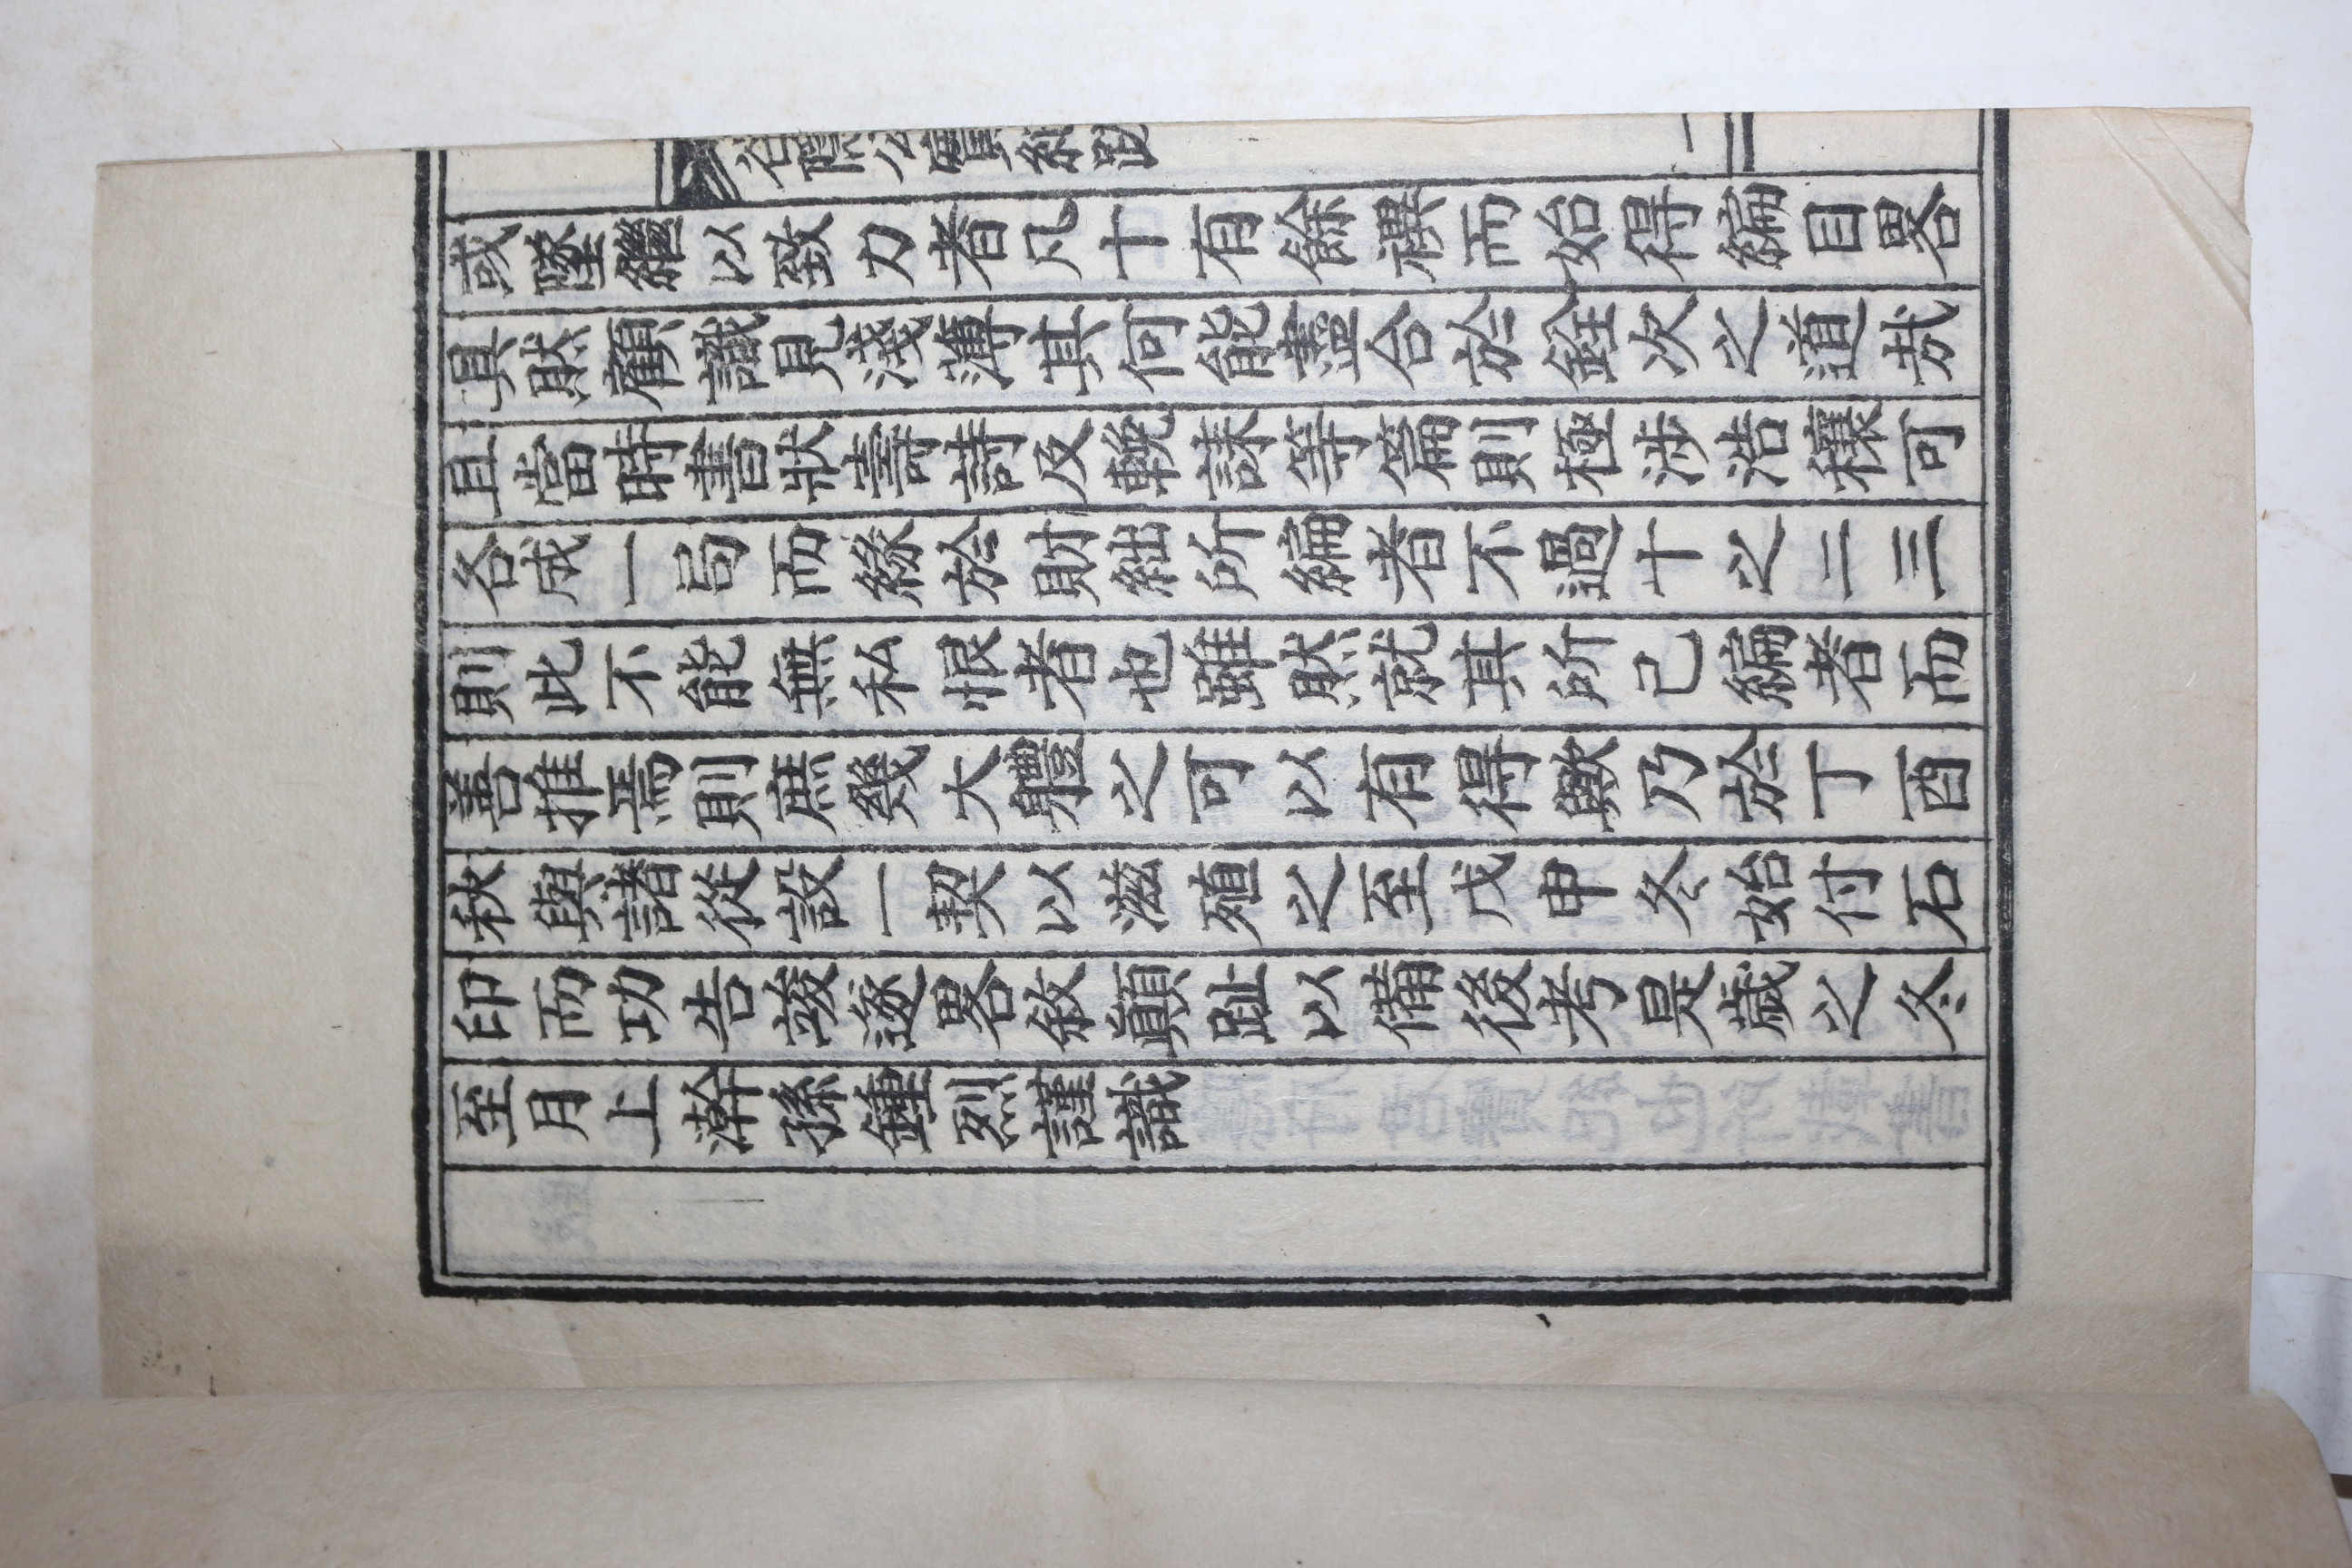 谷隱公實紀跋
二
或墜繼以致力者凡十有餘禩而始得編目畧
具然顧識見淺薄其何能盡合於銓次之道哉
且當時書狀壽詩及輓誄等篇則極涉浩穰可
各成一局而緣於財絀所編者不過十之二三
則此不能無私恨者也雖然就其所已編者而
善推焉則庶幾大軆之可以有得歟乃於丁酉
秋與諸從設一契以滋殖之至戊申冬始付石
印而功告竣遂畧敘顚趾以備後考是歲之冬
至月上澣孫鍾烈謹識